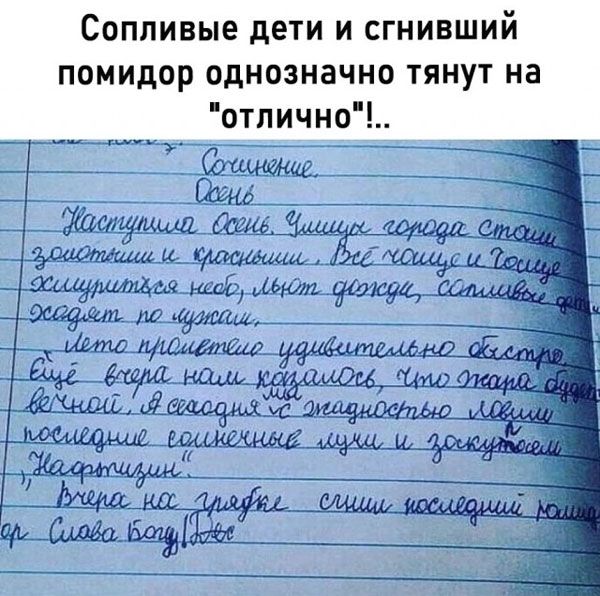 Сопливые дети и сгнивший
помидор однозначно тянут на
"отлично"!..
Сочинение.
Осень
Наступила Осень. Улицы города стали
золотыми и красными. Всё чаще и
небо, льют дожди, сопливые дети
ходят по лужам.
Лето пролетело удивительно быстро.
Ещё вчера нам казалось, что жара будет
вечной. А сегодня мы с жадностью ловим
последние солнечные лучи и
„Нафтизин".
Вчера на грядке сгнил последний помид
ор Слава Богу!